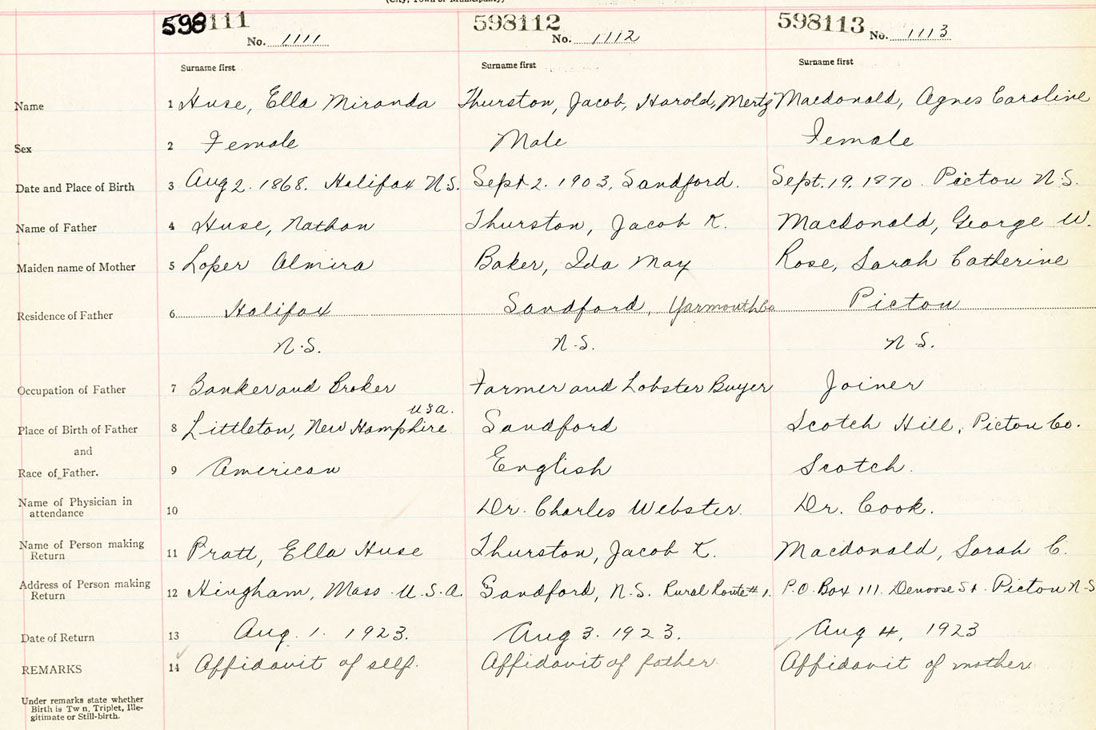 (City, Town or Municipality)
598111 598112 598113
No. 1111 No. 1112 No. 1113
Surname first Surname first Surname first
Name 1 Huse, Ella Miranda Thurston, Jacob, Harold, Mertz Macdonald, Agnes Caroline
Sex 2 Female Male Female
Date and Place of Birth 3 Aug 2. 1868. Halifax N.S. Sept 2. 1903, Sandford. Sept. 19. 1870 Pictou N.S.
Name of Father 4 Huse, Nathan Thurston, Jacob K. Macdonald, George W.
Maiden name of Mother 5 Loper Almira Baker, Ida May Rose, Sarah Catherine
Residence of Father 6 Halifax Sandford, Yarmouth Co Pictou
N.S. N.S. N.S.
Occupation of Father 7 Banker and Broker Farmer and Lobster Buyer Joiner
U.S.A.
Place of Birth of Father 8 Littleton, New Hamphire Sandford Scotch Hill, Pictou Co.
and
Race of Father. 9 American English Scotch.
Name of Physician in
attendance 10 Dr. Charles Webster. Dr. Cook.
Name of Person making
Return 11 Pratt, Ella Huse Thurston, Jacob K. Macdonald, Sarah C.
Address of Person making
Return 12 Hingham, Mass. U.S.A. Sandford, N.S. Rural Route # 1. P.O. Box 111. St. Pictou N.S
Date of Return 13 Aug. 1. 1923. Aug 3. 1923. Aug 4, 1923
REMARKS 14 Affidavit of self. Affidavit of father Affidavit of mother
Under remarks state whether
Birth is Tw n, Triplet, Ille-
gitimate or Still-birth.